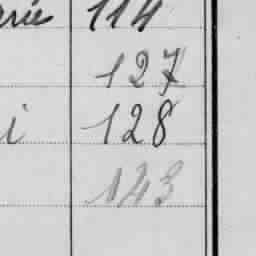 114
127
i 128
143